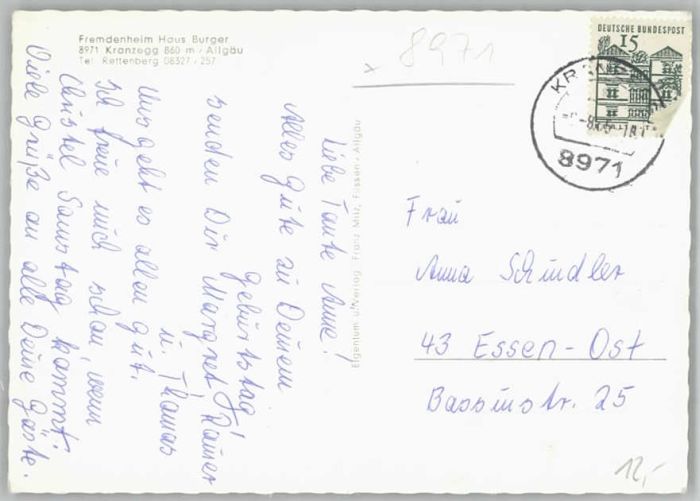 Fremdenheim Haus Burger
8971 Kranzegg 860 m · Allgäu
Tel. Rettenberg 08327 / 257
8971
DEUTSCHE BUNDESPOST
15
8971
Liebe Tante Anne!
Alles Gute zu Deinem
Geburtstag
senden Dir Margret, Rainer
u. Thomas
Uns geht es allen gut.
Ich freue mich schon, wenn
Christel Samstag kommt.
Viele Grüße an alle Deine Gäste.
Eigentum u. Verlag Franz Milz, Füssen · Allgäu
Frau
Anna Schindler
43 Essen-Ost
Bassinstr. 25
12,-